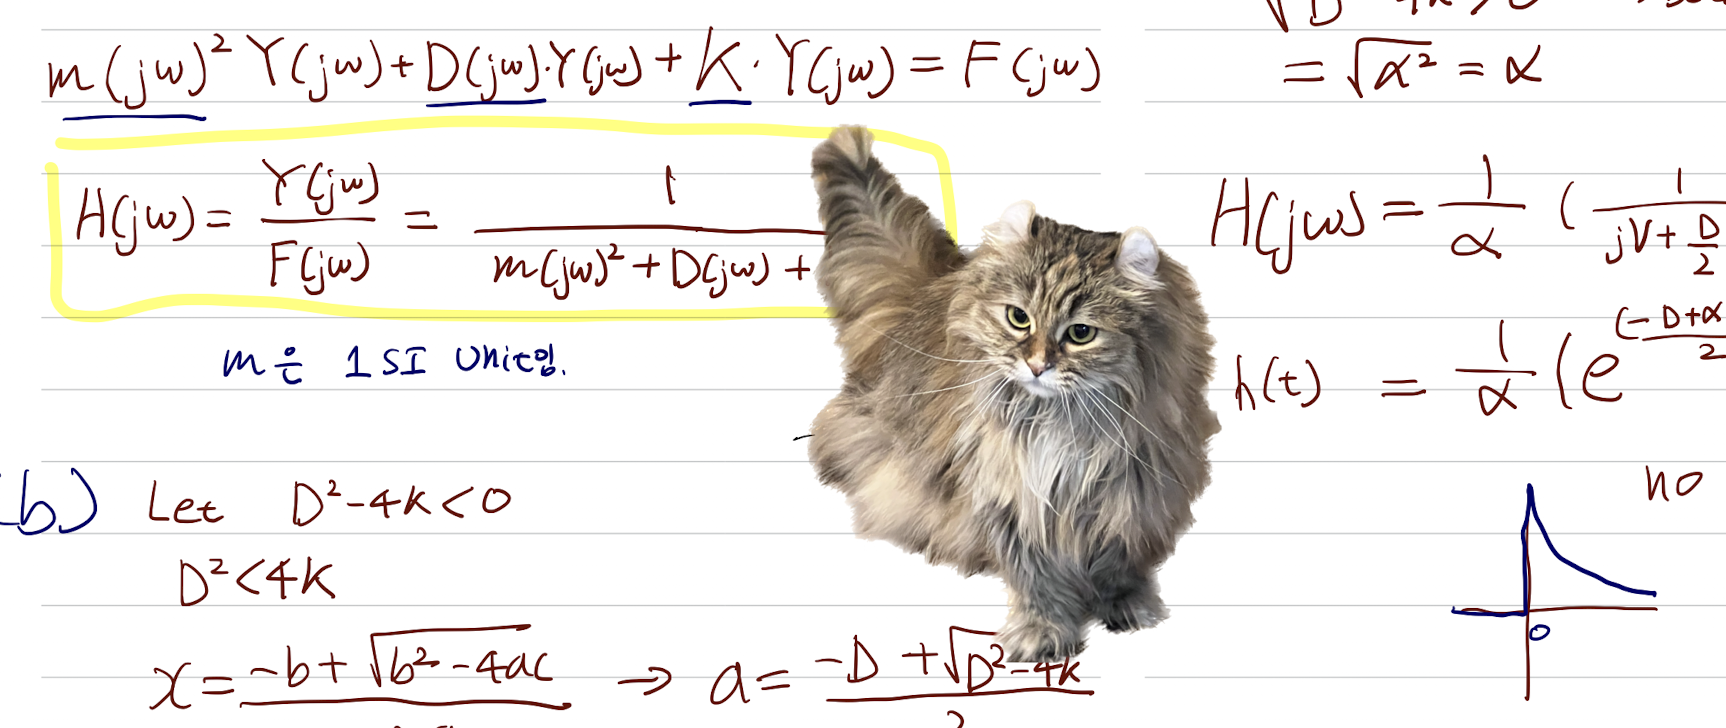 m(jw)² Y(jw) + D(jw)·Y(jw) + K · Y(jw) = F(jw)
H(jw) = Y(jw) / F(jw) = 1 / m(jw)² + D(jw) +
m은 1 SI Unit임.
(b) Let D²-4k<0
D²<4k
x = -b + √b²-4ac → a = -D + √D²-4k / 2
= √α² = α
H(jw) = 1/α ( 1 / jV + D/2
h(t) = 1/α (e^(-D+α / 2
no
0